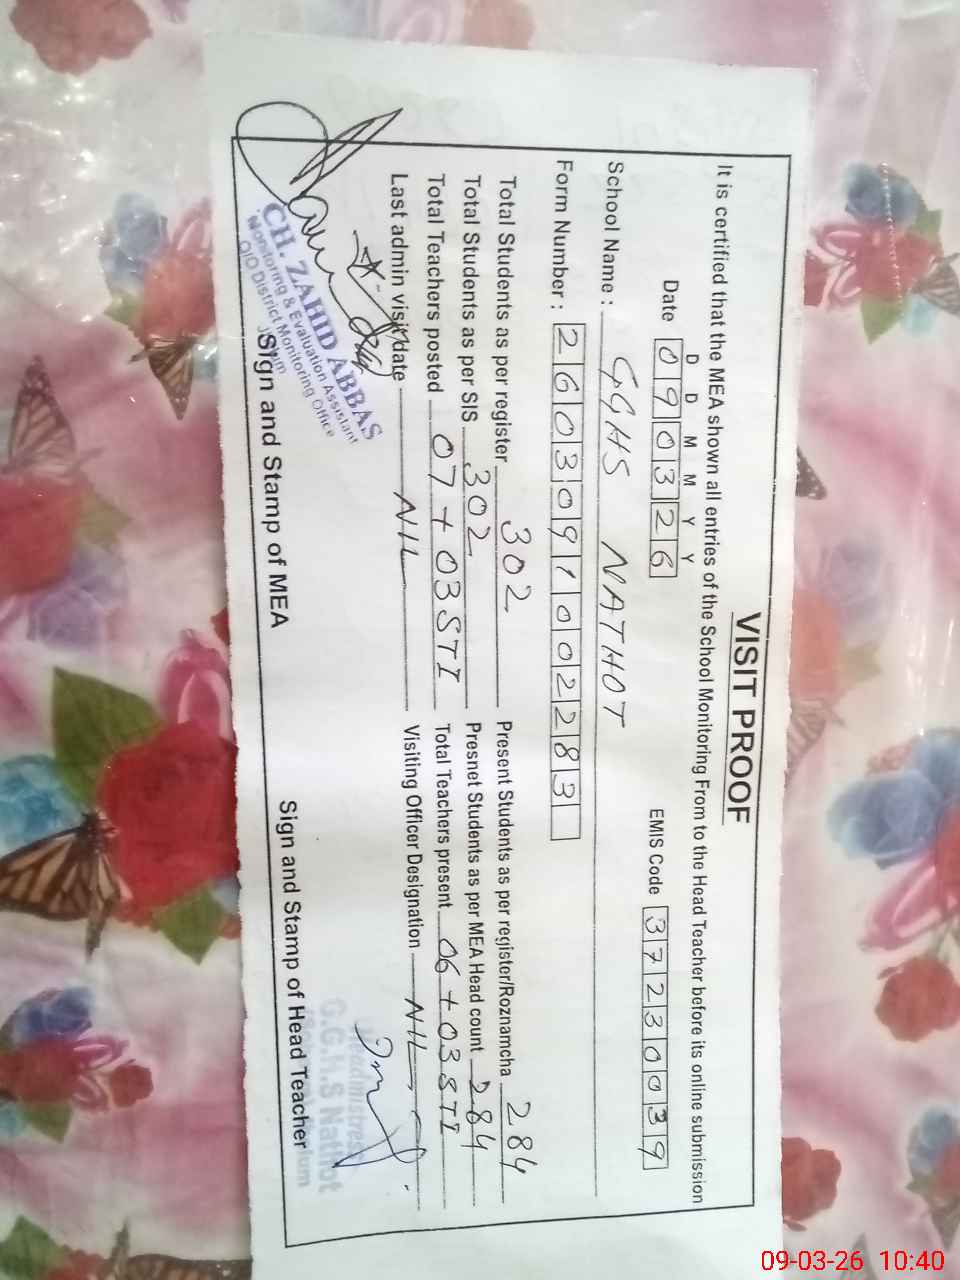 VISIT PROOF
It is certified that the MEA shown all entries of the School Monitoring From to the Head Teacher before its online submission
D D M M Y Y
Date 090326 EMIS Code 37230039
School Name : GGHS NATHOT
Form Number : 2603091002283
Total Students as per register 302 Present Students as per register/Roznamcha 284
Total Students as per SIS 302 Presnet Students as per MEA Head count 284
Total Teachers posted 07 + 03 STI Total Teachers present 06 + 03 STI
Last admin visit date NIL Visiting Officer Designation NIL
CH. ZAHID ABBAS
Monitoring & Evaluation Assistant
O/O District Monitoring Office
Headmistress
G.G.H.S Nathot
Sign and Stamp of MEA Sign and Stamp of Head Teacher
09-03-26 10:40